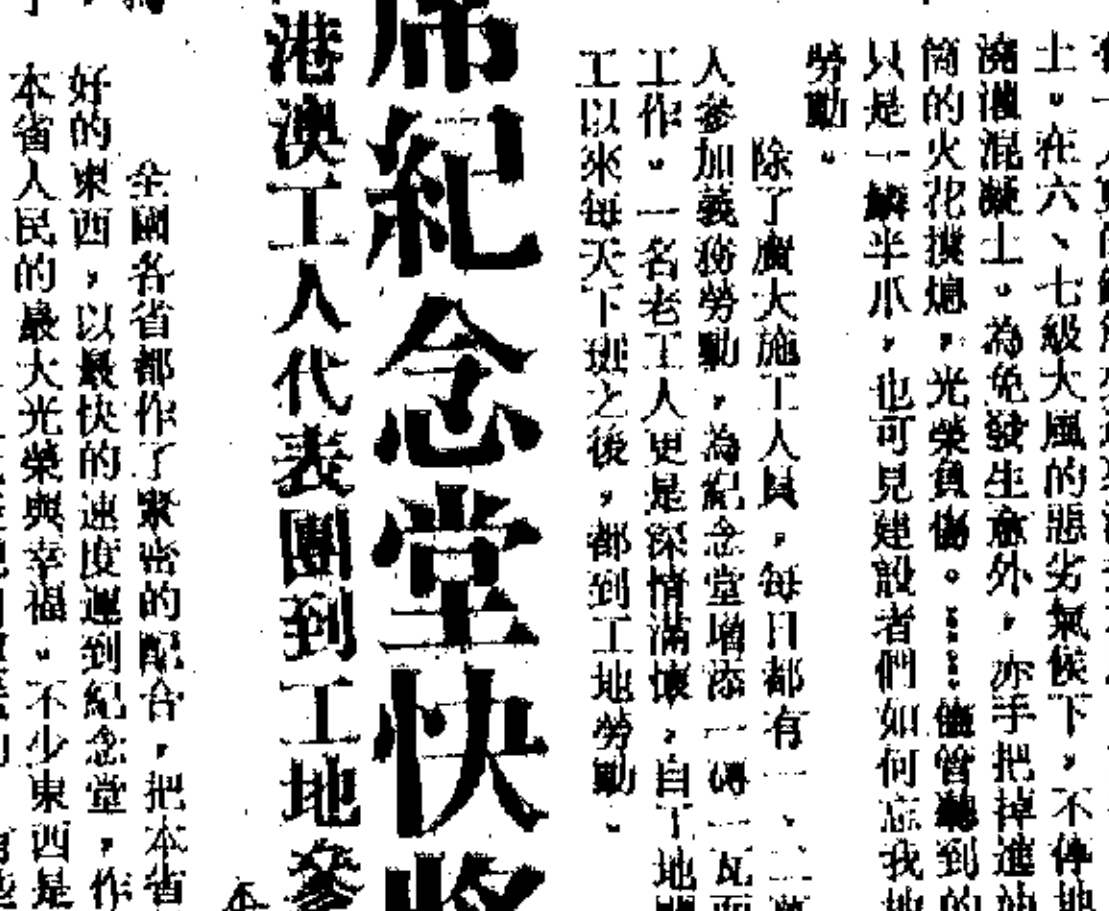 土。在六、七級大風的惡劣氣候下，不停地
澆灌混凝土。為免發生意外，亦手把掉進
筒的火花撲熄，光榮負傷。……儘管聽到的
只是一鱗半爪，也可見建設者們如何忘我地
勞動。
除了廣大施工人員，每日都有一、二萬
人參加義務勞動，為紀念堂增添一磚一瓦而
工作。一名老工人更是深情滿懷，自工地開
工以來每天下班之後，都到工地勞動。
席紀念堂快將
港澳工人代表團到工地參
全國各省都作了緊密的配合，把本省
好的東西，以最快的速度運到紀念堂，作
本省人民的最大光榮與幸福。不少東西是